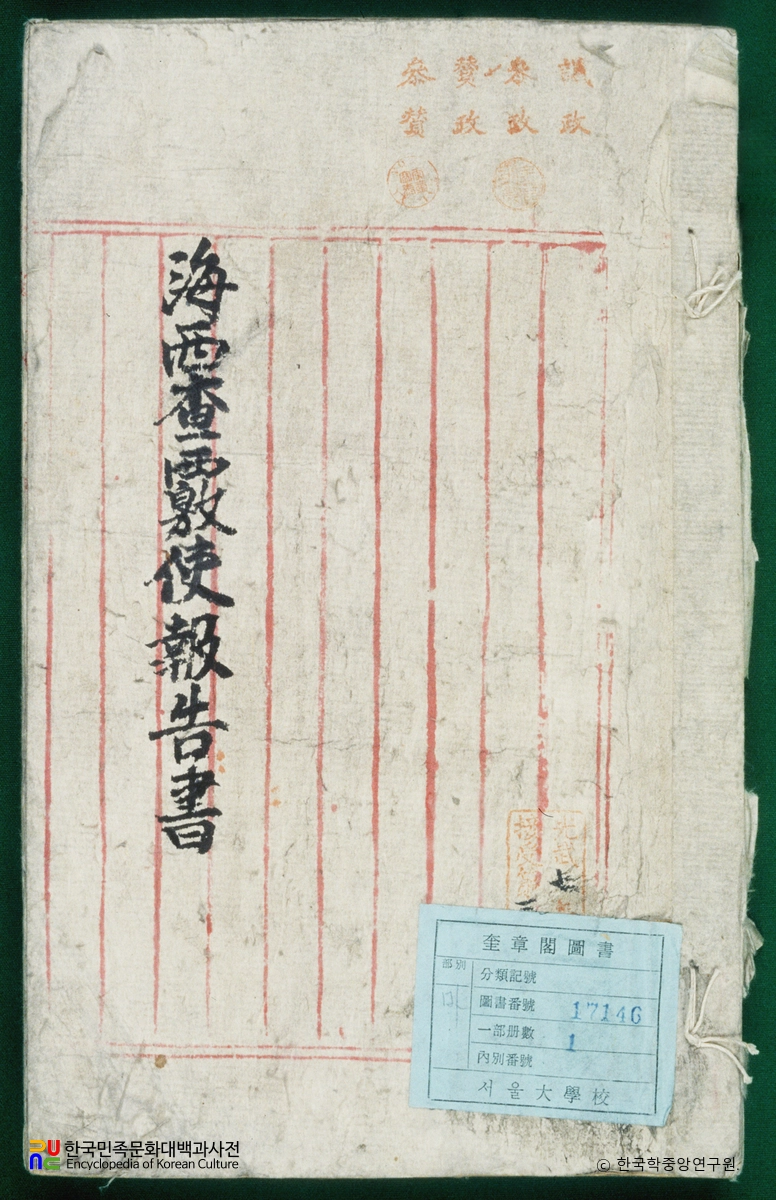 議政
參政
贊政
參贊
海西查覈使報告書
光武七
奎章閣圖書
部別
分類記號
圖書番號 17146
一部册數 1
內別番號
서울大學校
한국민족문화대백과사전
Encyclopedia of Korean Culture
ⓒ 한국학중앙연구원